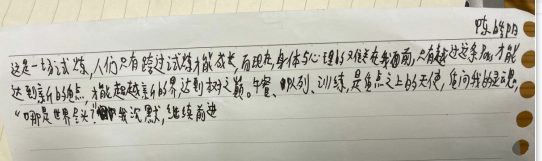 这是一场试炼,人们只有跨过试炼才能成长,而现在,身体与心理的双重考验在我面前,只有越过这条,才能
达到新的起点,才能超越新的界,达到之巅。午餐、队列、训练,是负点之上的天使,质问我的灵魂,
“哪是世界尽头?”我沉默,继续前进